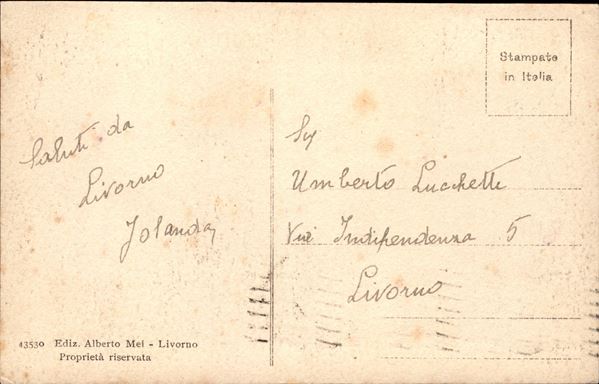 Stampato
in Italia
Saluti da
Livorno
Jolanda
Sig
Umberto Lucchetti
Via Indipendenza 5
Livorno
43530 Ediz. Alberto Mei - Livorno
Proprietà riservata